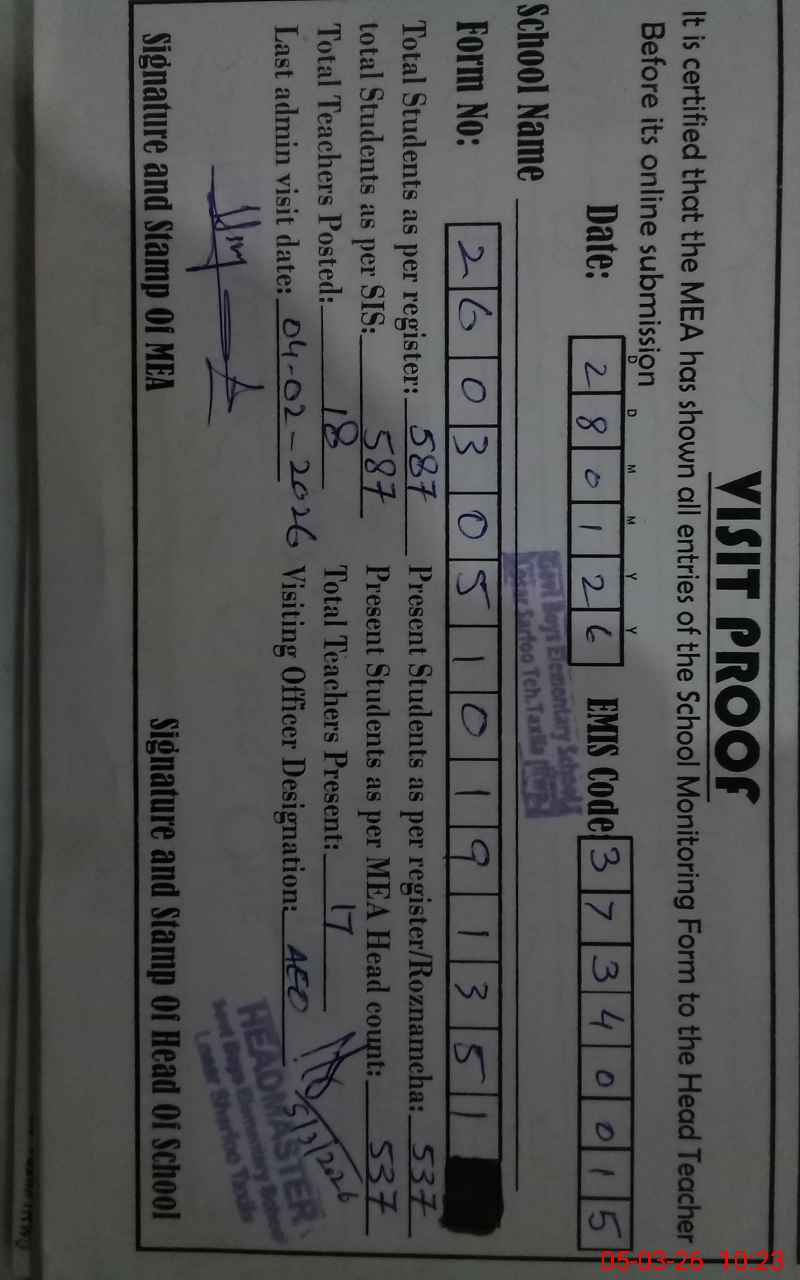 VISIT PROOF
It is certified that the MEA has shown all entries of the School Monitoring Form to the Head Teacher
Before its online submission
D D M M Y Y
Date: 2 8 0 1 2 6 EMIS Code: 3 7 3 4 0 0 1 5
Govt Boys Elementary School
Losar Sarfoo Teh. Taxila
School Name
Form No: 2 6 0 3 0 5 1 0 1 9 1 3 5 1
Total Students as per register: 587 Present Students as per register/Roznamcha: 537
total Students as per SIS: 587 Present Students as per MEA Head count: 537
Total Teachers Posted: 18 Total Teachers Present: 17
Last admin visit date: 04-02-2026 Visiting Officer Designation: AEO
5/2/2026
HEADMASTER
Govt Boys Elementary School
Losar Sharfoo Taxila
Signature and Stamp Of MEA Signature and Stamp Of Head Of School
05-03-26 10:23